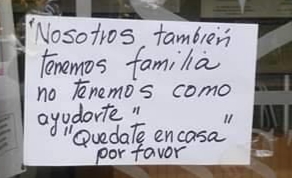 "Nosotros también
tenemos familia
no tenemos como
ayudarte"
"Quedate en casa"
por favor